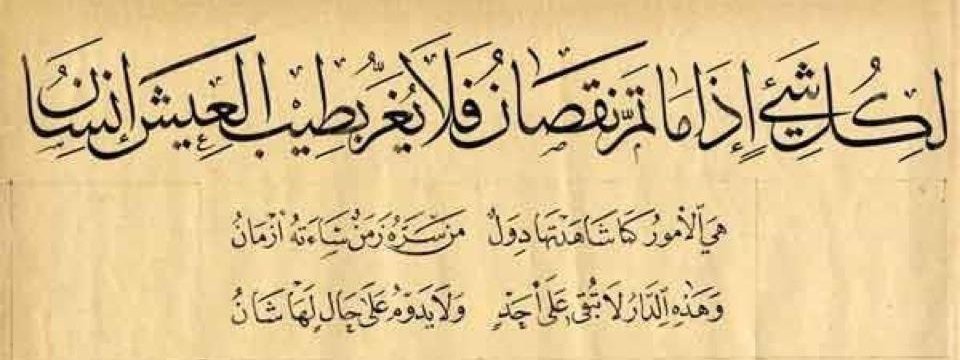 لِكُلِّ شَيْءٍ إِذَا مَا تَمَّ نُقْصَانُ فَلَا يُغَرَّ بِطِيبِ الْعَيْشِ إِنْسَانُ
هِيَ الْأُمُورُ كَمَا شَاهَدْتَهَا دُوَلٌ مَنْ سَرَّهُ زَمَنٌ سَاءَتْهُ أَزْمَانُ
وَهَذِهِ الدَّارُ لَا تُبْقِي عَلَى أَحَدٍ وَلَا يَدُومُ عَلَى حَالٍ لَهَا شَانُ